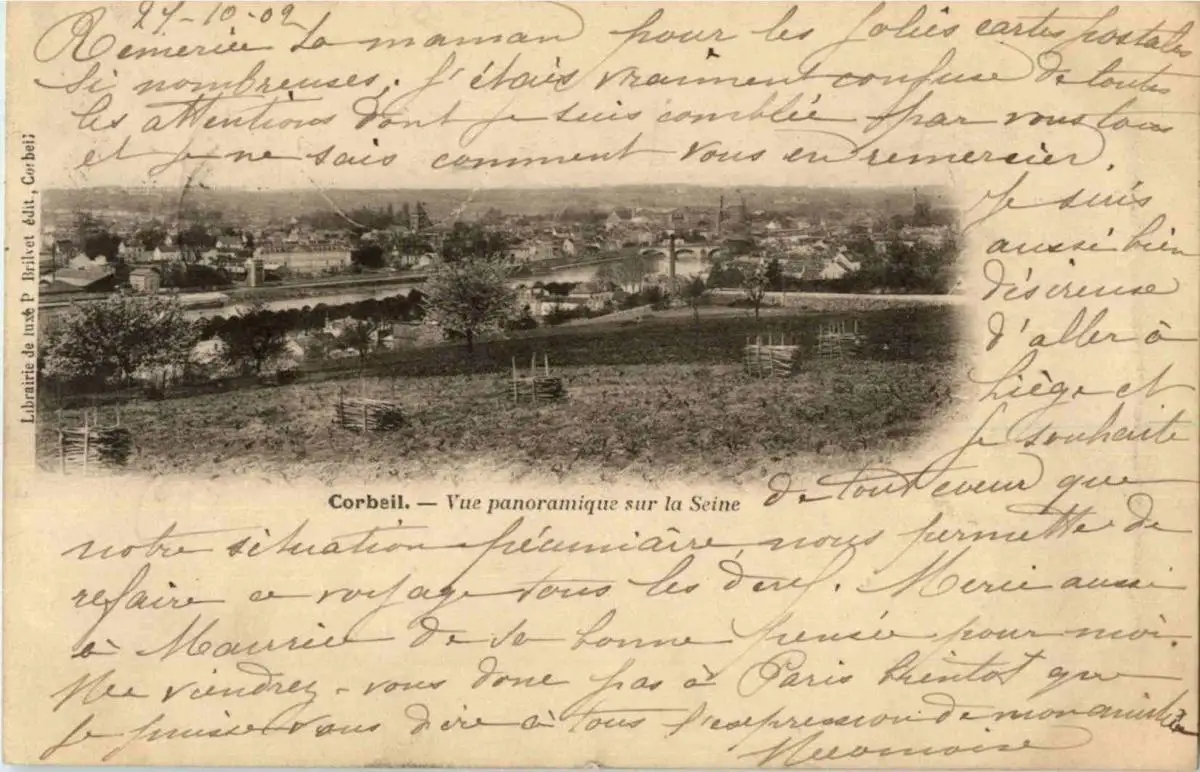 27-10-02
Remercie ta maman pour les jolies cartes postales
si nombreuses. J'étais vraiment confuse de toutes
les attentions dont je suis comblée par vous tous
et je ne sais comment vous en remercier.
Je suis
aussi bien
désireuse
d'aller à
Liège et
je souhaite
de tout coeur que
notre situation pécuniaire nous permette de
refaire ce voyage tous les deux. Merci aussi
à Maurice de sa bonne pensée pour moi.
Ne viendrez-vous donc pas à Paris bientôt que
je puisse vous dire à tous l'expression de mon amitié
Librairie de luxe P. Brilvet édit., Corbeil
Corbeil. — Vue panoramique sur la Seine